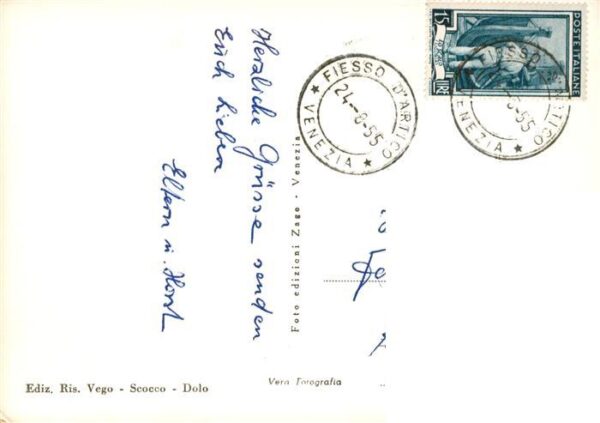 Herzliche Grüsse senden
Euch Lieben
Eltern u. Horst
Foto edizioni Zago - Venezia
Ediz. Ris. Vego - Scocco - Dolo
Vera Fotografia
FIESSO D'ARTICO
24-8-55
VENEZIA
15
LIRE
POSTE ITALIANE
VENEZIA